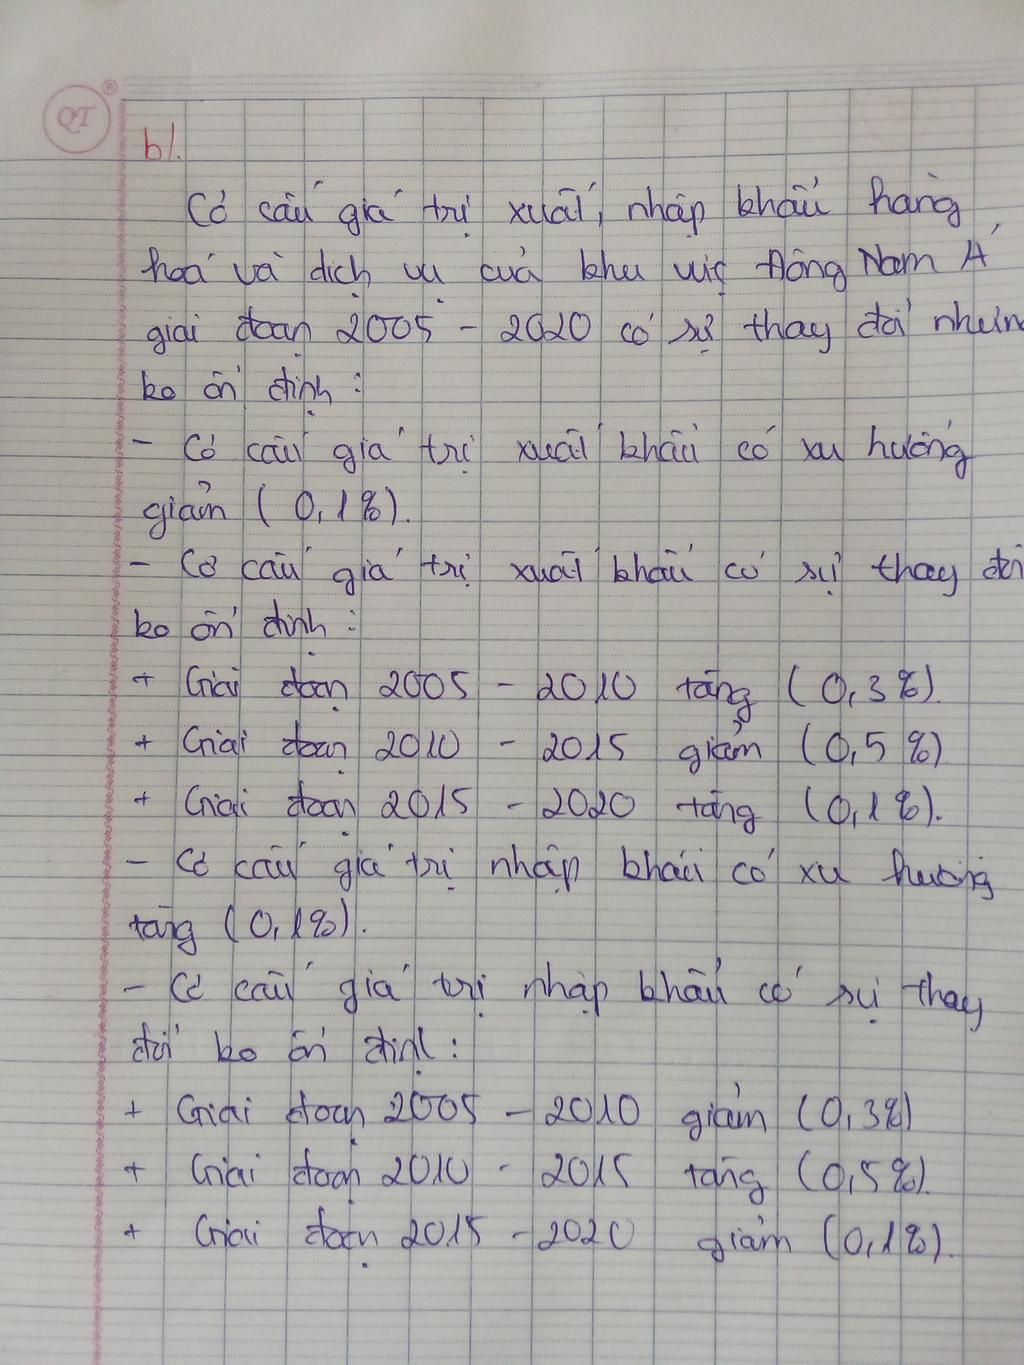 QT ®
b/.
Cơ cấu giá trị xuất, nhập khẩu hàng
hoá và dịch vụ của khu vực Đông Nam Á
giai đoạn 2005 - 2020 có sự thay đổi nhưng
ko ổn định :
- Cơ cấu giá trị xuất khẩu có xu hướng
giảm ( 0,1%).
- Cơ cấu giá trị xuất khẩu có sự thay đổi
ko ổn định :
+ Giai đoạn 2005 - 2010 tăng ( 0,3%).
+ Giai đoạn 2010 - 2015 giảm (0,5 %)
+ Giai đoạn 2015 - 2020 tăng (0,1%).
- Cơ cấu giá trị nhập khẩu có xu hướng
tăng (0,1%).
- Cơ cấu giá trị nhập khẩu có sự thay
đổi ko ổn định :
+ Giai đoạn 2005 - 2010 giảm (0,3%)
+ Giai đoạn 2010 - 2015 tăng (0,5%).
+ Giai đoạn 2015 - 2020 giảm (0,1%).